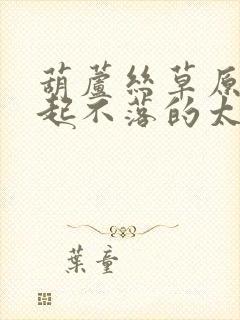 葫蘆絲草原
起不落的太
葉童